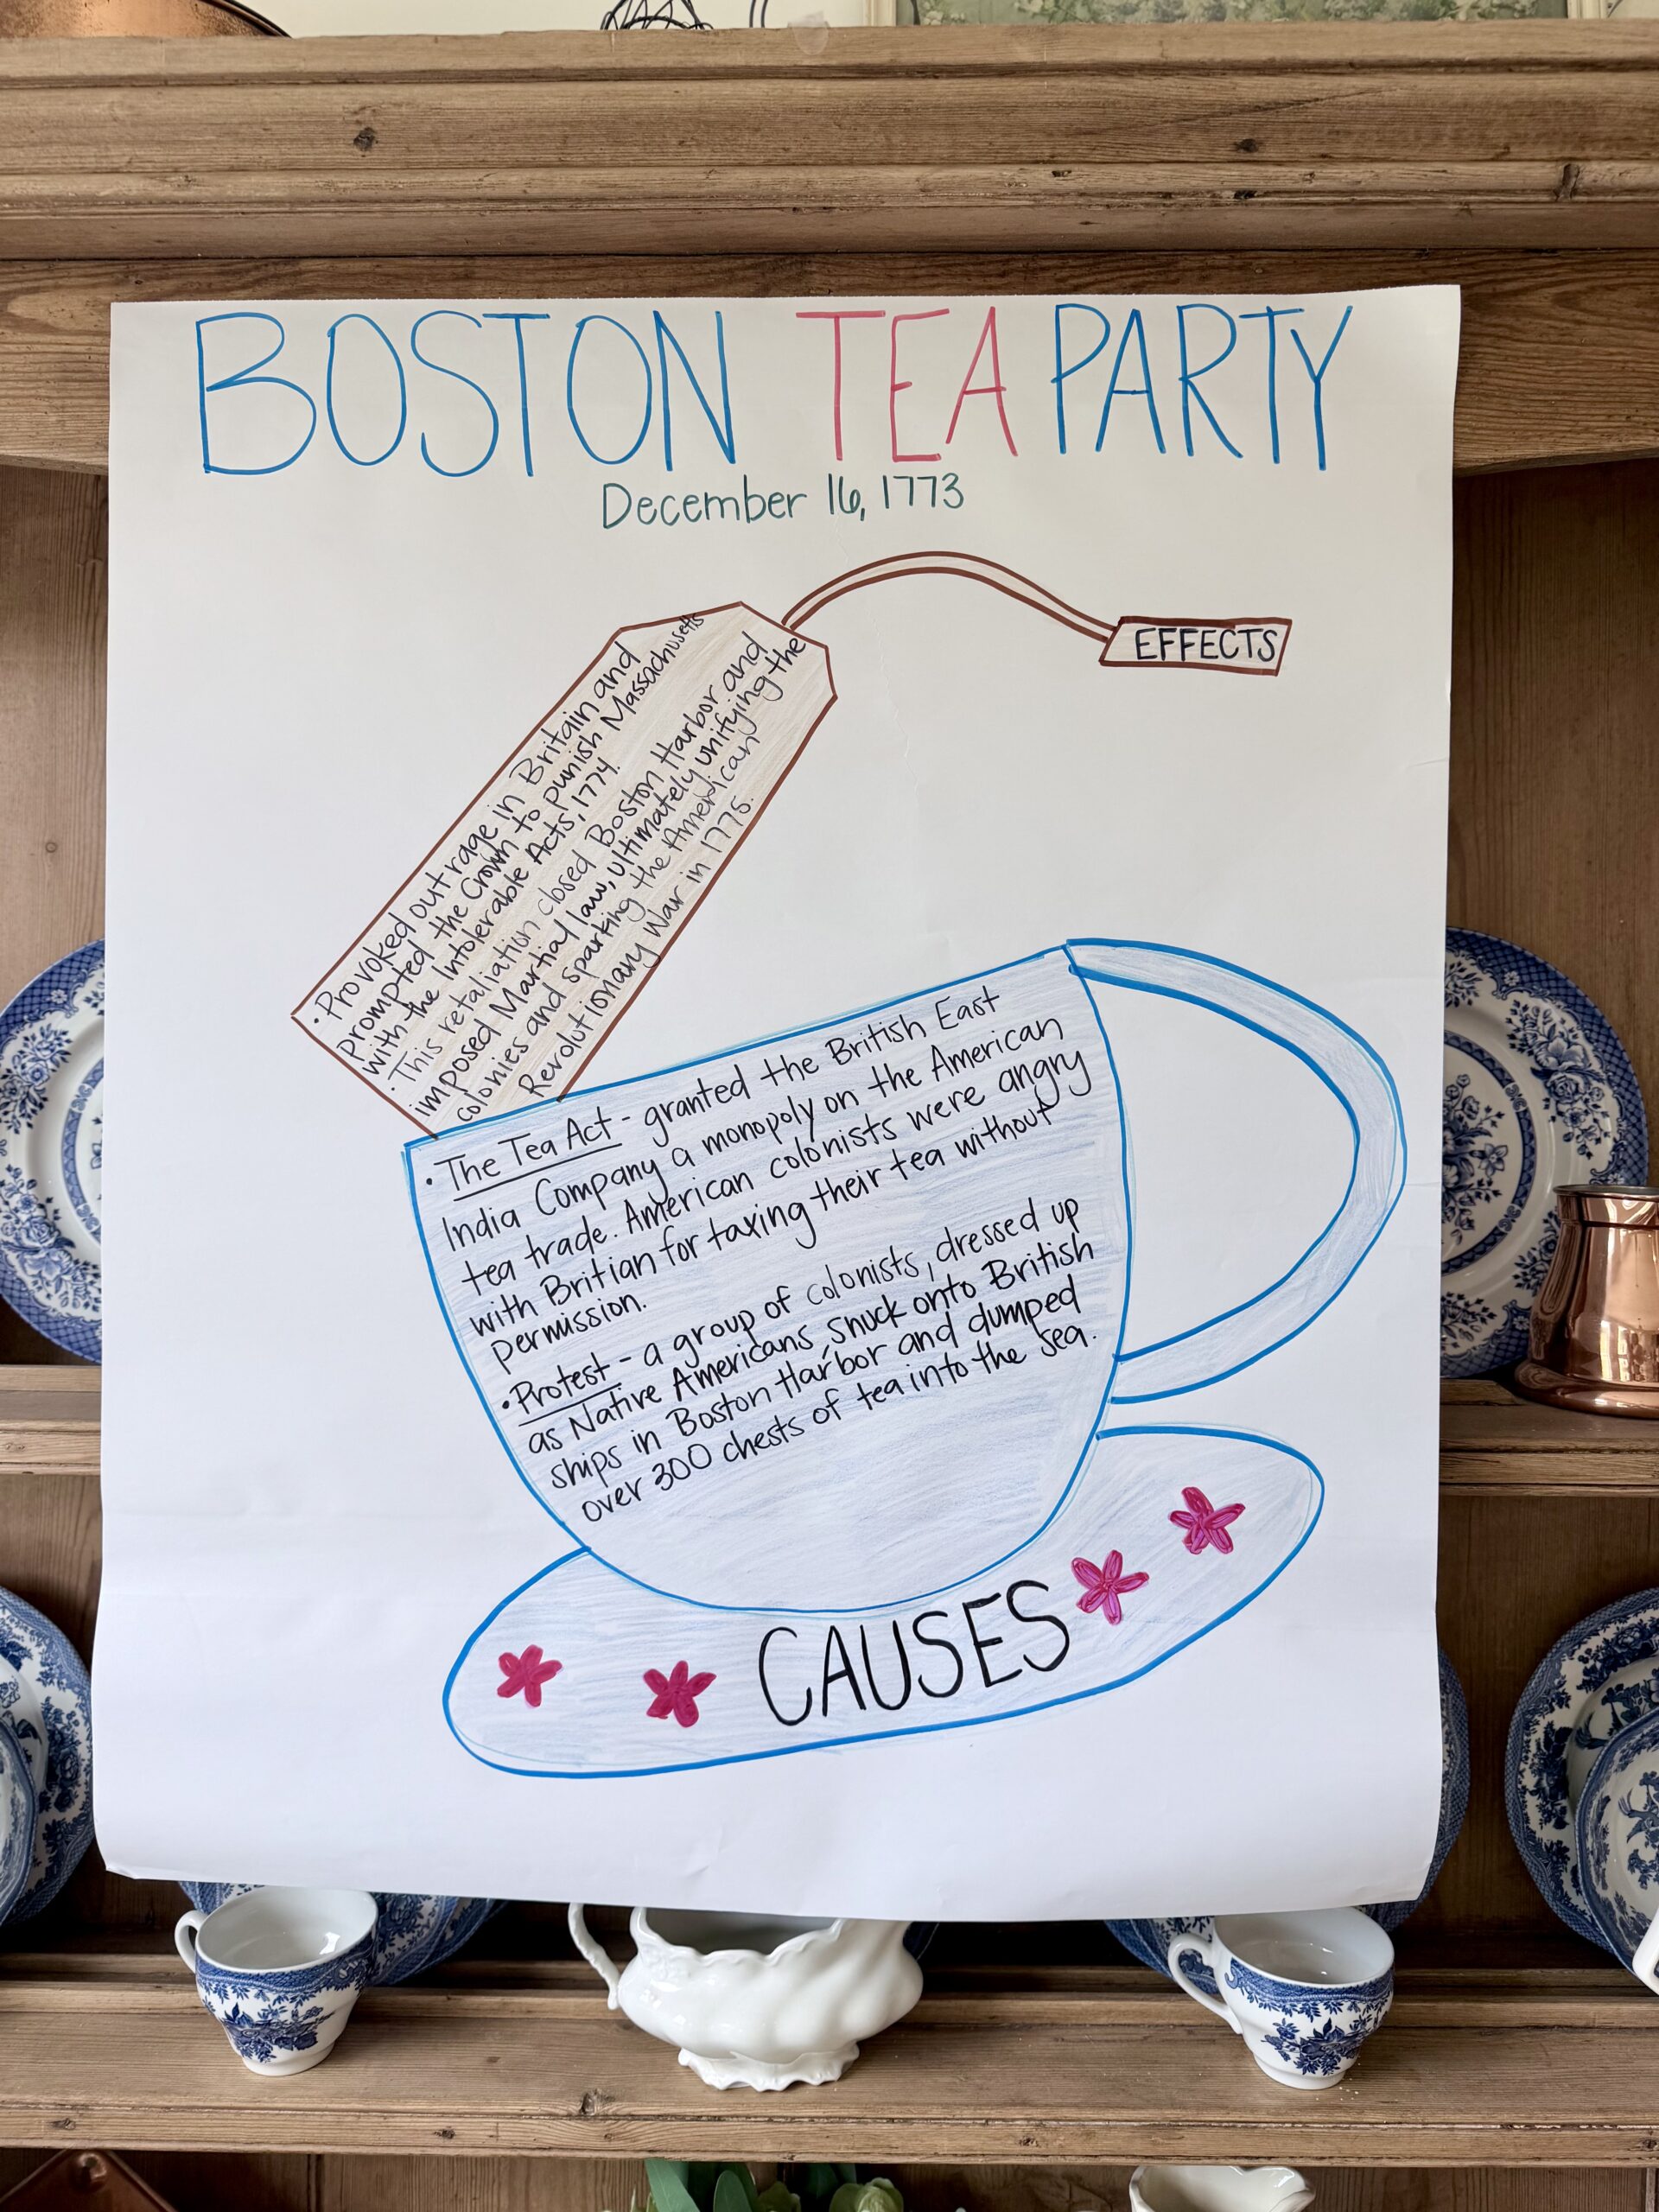 BOSTON TEA PARTY
December 16, 1773
EFFECTS
• Provoked outrage in Britain and
prompted the Crown to punish Massachusetts
with the Intolerable Acts, 1774.
• This retaliation closed Boston Harbor and
imposed Martial law, ultimately unifying the
colonies and sparking the American
Revolutionary War in 1775.
• The Tea Act - granted the British East
India Company a monopoly on the American
tea trade. American colonists were angry
with Britian for taxing their tea without
permission.
• Protest - a group of colonists, dressed up
as Native Americans, snuck onto British
ships in Boston Harbor and dumped
over 300 chests of tea into the sea.
CAUSES